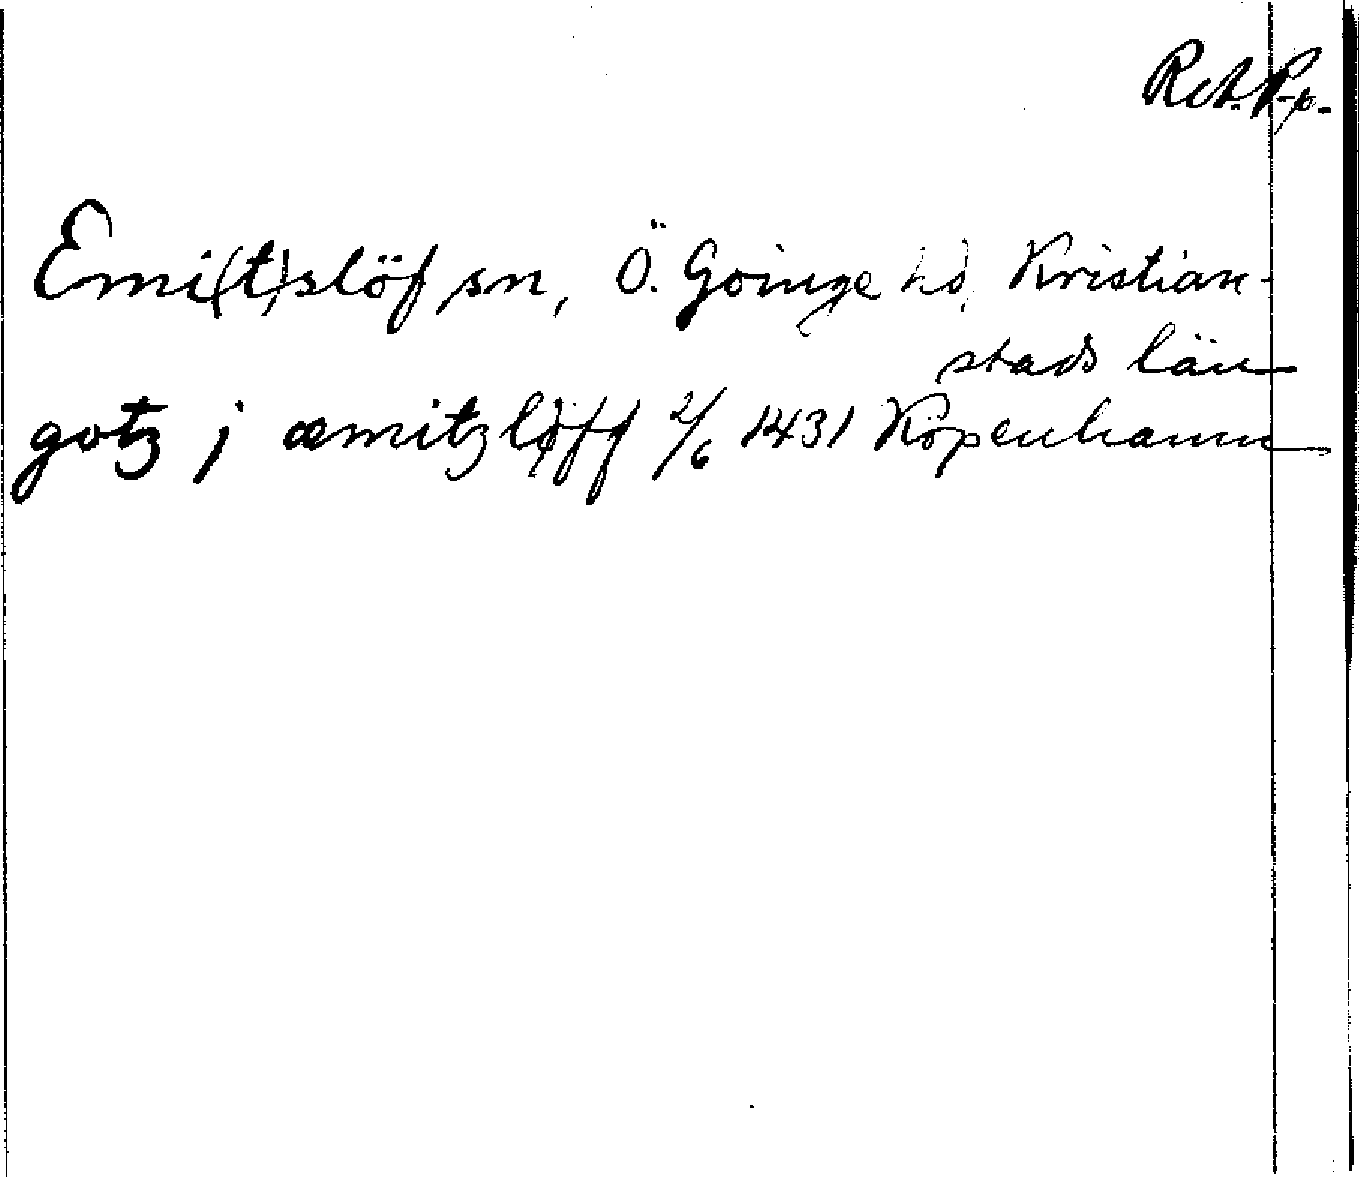 RA. P-p.
Emi(t)slöf sn, Ö. Göinge hd, Kristian-
stads län
gotz j æmitzløff 2/6 1431 Köpenhamn